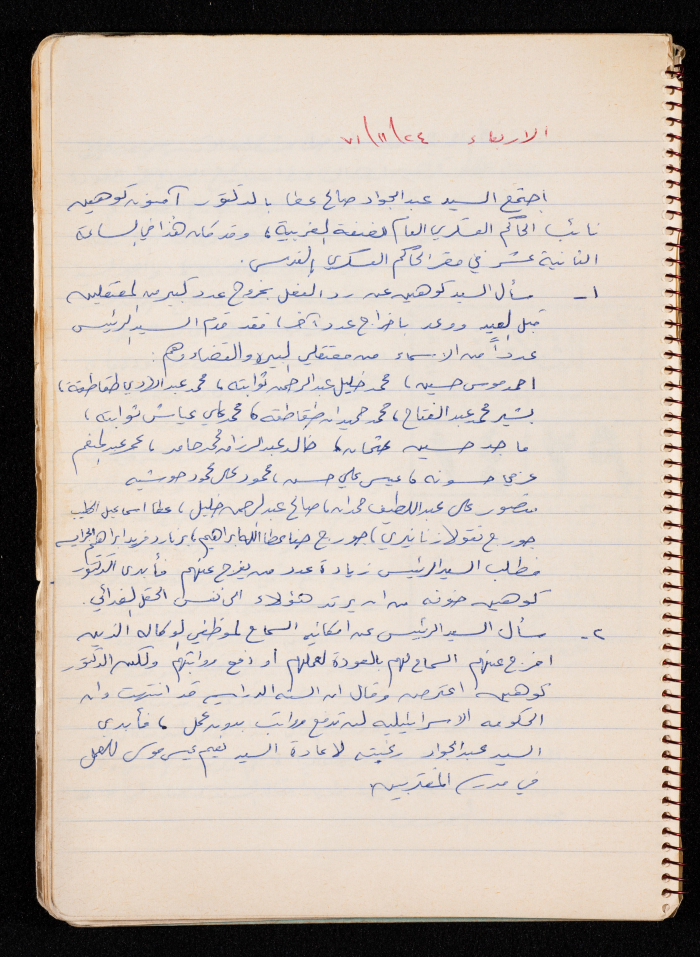 الاربعاء ٢٤/١١/٧١
اجتمع السيد عبد الجواد صالح عطا بالدكتور آمنون كوهين
نائب الحاكم العسكري العام للضفة الغربية، وقد كان هذا في الساعة
الثانية عشر في مقر الحاكم العسكري بالقدس.
١- سأل السيد كوهين عن رد الفعل بخروج عدد كبير من المعتقلين
قبل العيد ووعد باخراج عدد آخر، فقد قدم السيد الرئيس
عدداً من الاسماء من معتقلي البيره والقضاء وهم:
احمد موسى حسين، محمد خليل عبد الرحمن ثوابته، محمد عبد الهادي طقاطقة،
بشير محمد عبد الفتاح، محمد حميدان طقاطقه، محمد علي عياش ثوابته،
ماجد حسين عثمان، خالد عبد الرزاق محمد حامد، عمر عبد المنعم
عزمي حسونه، عيسى علي حسن، محمود علي محمود حوشيه
منصور علي عبد اللطيف حمدان، صالح عبد الرحمن خليل، عطا اسماعيل الخطيب
جورج نقولا زنانيري، جورج حنا عطا الله ابراهيم، برنارد فريد ابراهيم
فطلب السيد الرئيس زيادة عدد من يفرج عنهم فأبدى الدكتور
كوهين خوفه من ان يرتد هؤلاء الى نفس الحقل الفدائي.
٢- سأل السيد الرئيس عن امكانية السماح لموظفي الوكاله الذين
افرج عنهم السماح لهم بالعودة لعملهم أو دفع رواتبهم ولكن الدكتور
كوهين اعترض وقال ان السنه الدراسيه قد ابتدت وان
الحكومه الاسرائيليه لن تدفع رواتب بدون عمل، فأبدى
السيد عبد الجواد رغبته لاعادة السيد نعيم عيسى موسى للعمل
في مدرسة المغتربين